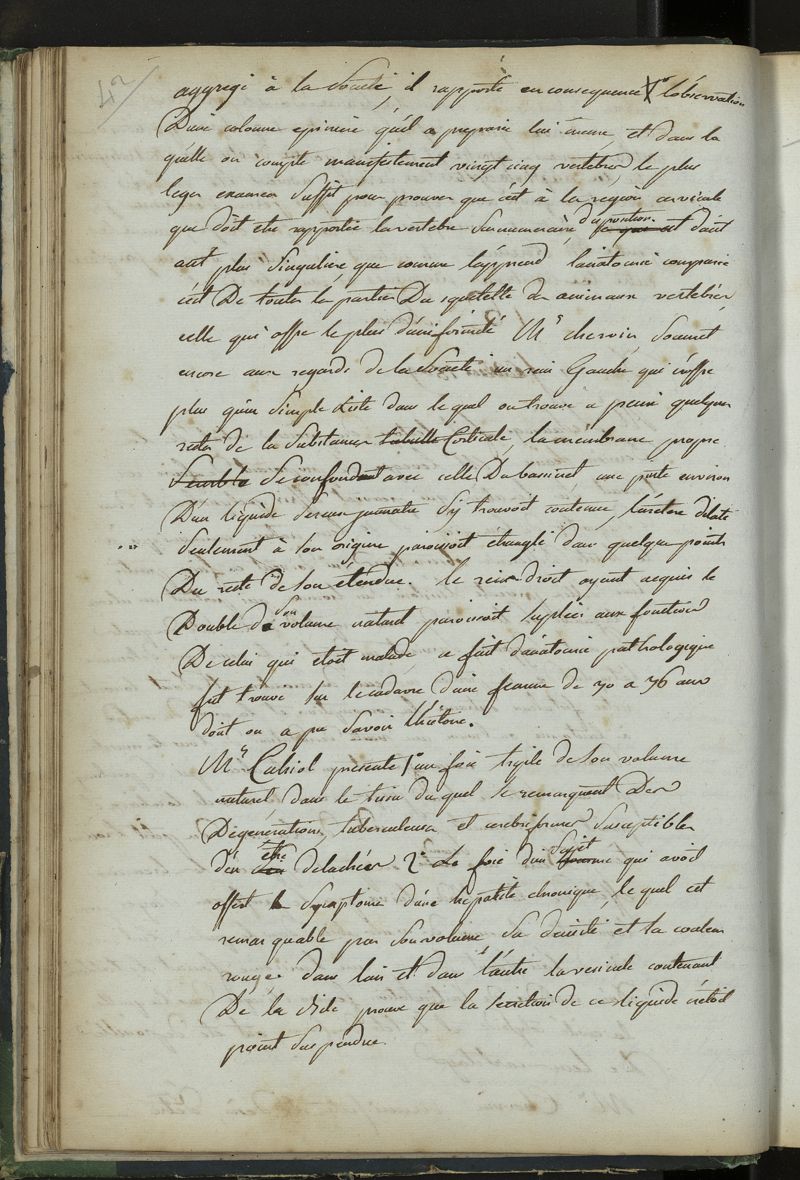 42
aggregé à la Société, il rapporte en consequence 1° l'observation
D'une colonne epiniere qu'il a preparée lui même, et dans la
quelle on compte manifestement vingt cinq vertebres, le plus
leger examen Suffit pour prouver que c'est à la region cervicale
que doit etre rapportée la vertebre Surnumeraire, disposition d'aut
ant plus Singuliere que comme l'apprend l'anatomie comparée
c'est De toutes les parties Du squelette des animaux vertebrés,
celle qui offre le plus d'uniformité Mr chervin Soumet
encore aux regards de la Société un rein Gauche qui n'offre
plus qu'un Simple kiste dans le quel on trouve a peine quelques
restes de la Substance tubulle Corticale, la membrane propre
Semble Se confondant avec celle Du bassinet, une pinte environ
D'un liquide Sereux jaunatre S'y trouvoit contenue, l'uretere dilaté
Seulement à Son origine paroissoit étranglé dans quelque points
Du reste de Son étendue. le rein droit ayant acquis le
Double de Son volume naturel paroissoit Supléer aux fonctions
De celui qui etoit malade ce fait d'anatomie pathologique
fut trouvé Sur le cadavre d'une femme de 70 a 76 ans
dont on a pu Savoir l'histoire.
Mr présente 1° un foie triple de Son volume
naturel, dans le tissu du quel Se remarquent Des
Dégénérations, tuberculeuses et cerebriformes Susceptibles
d'en être detachées 2° Le foie d'un Sujet qui avoit
offert le Symptome d'une hepatite chronique, le quel est
remarquable par Son volume, Sa densité et la couleur
rouge. dans l'un et dans l'autre la vesicule contenant
De la bile prouve que la Secretion de ce liquide n'etoit
point Suspendue.